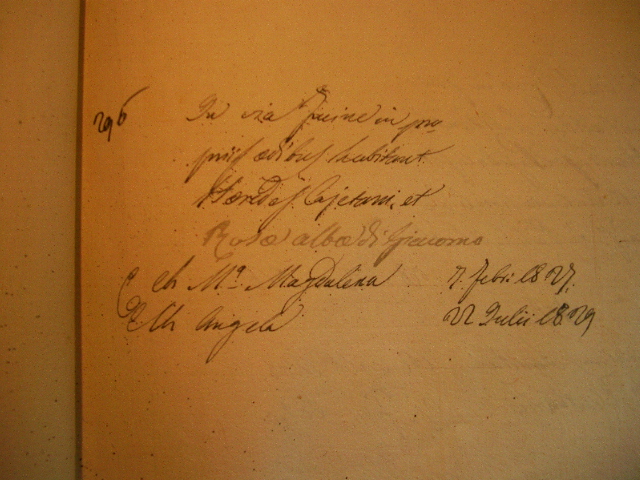 296
In via in pro
priis edibus habitant
Heredes Cajetani, et
Rosæ albæ di Giacomo
C ch Mª. Magdalena 7. Febr: 1827.
C Ch Angela 22 Julii 1829